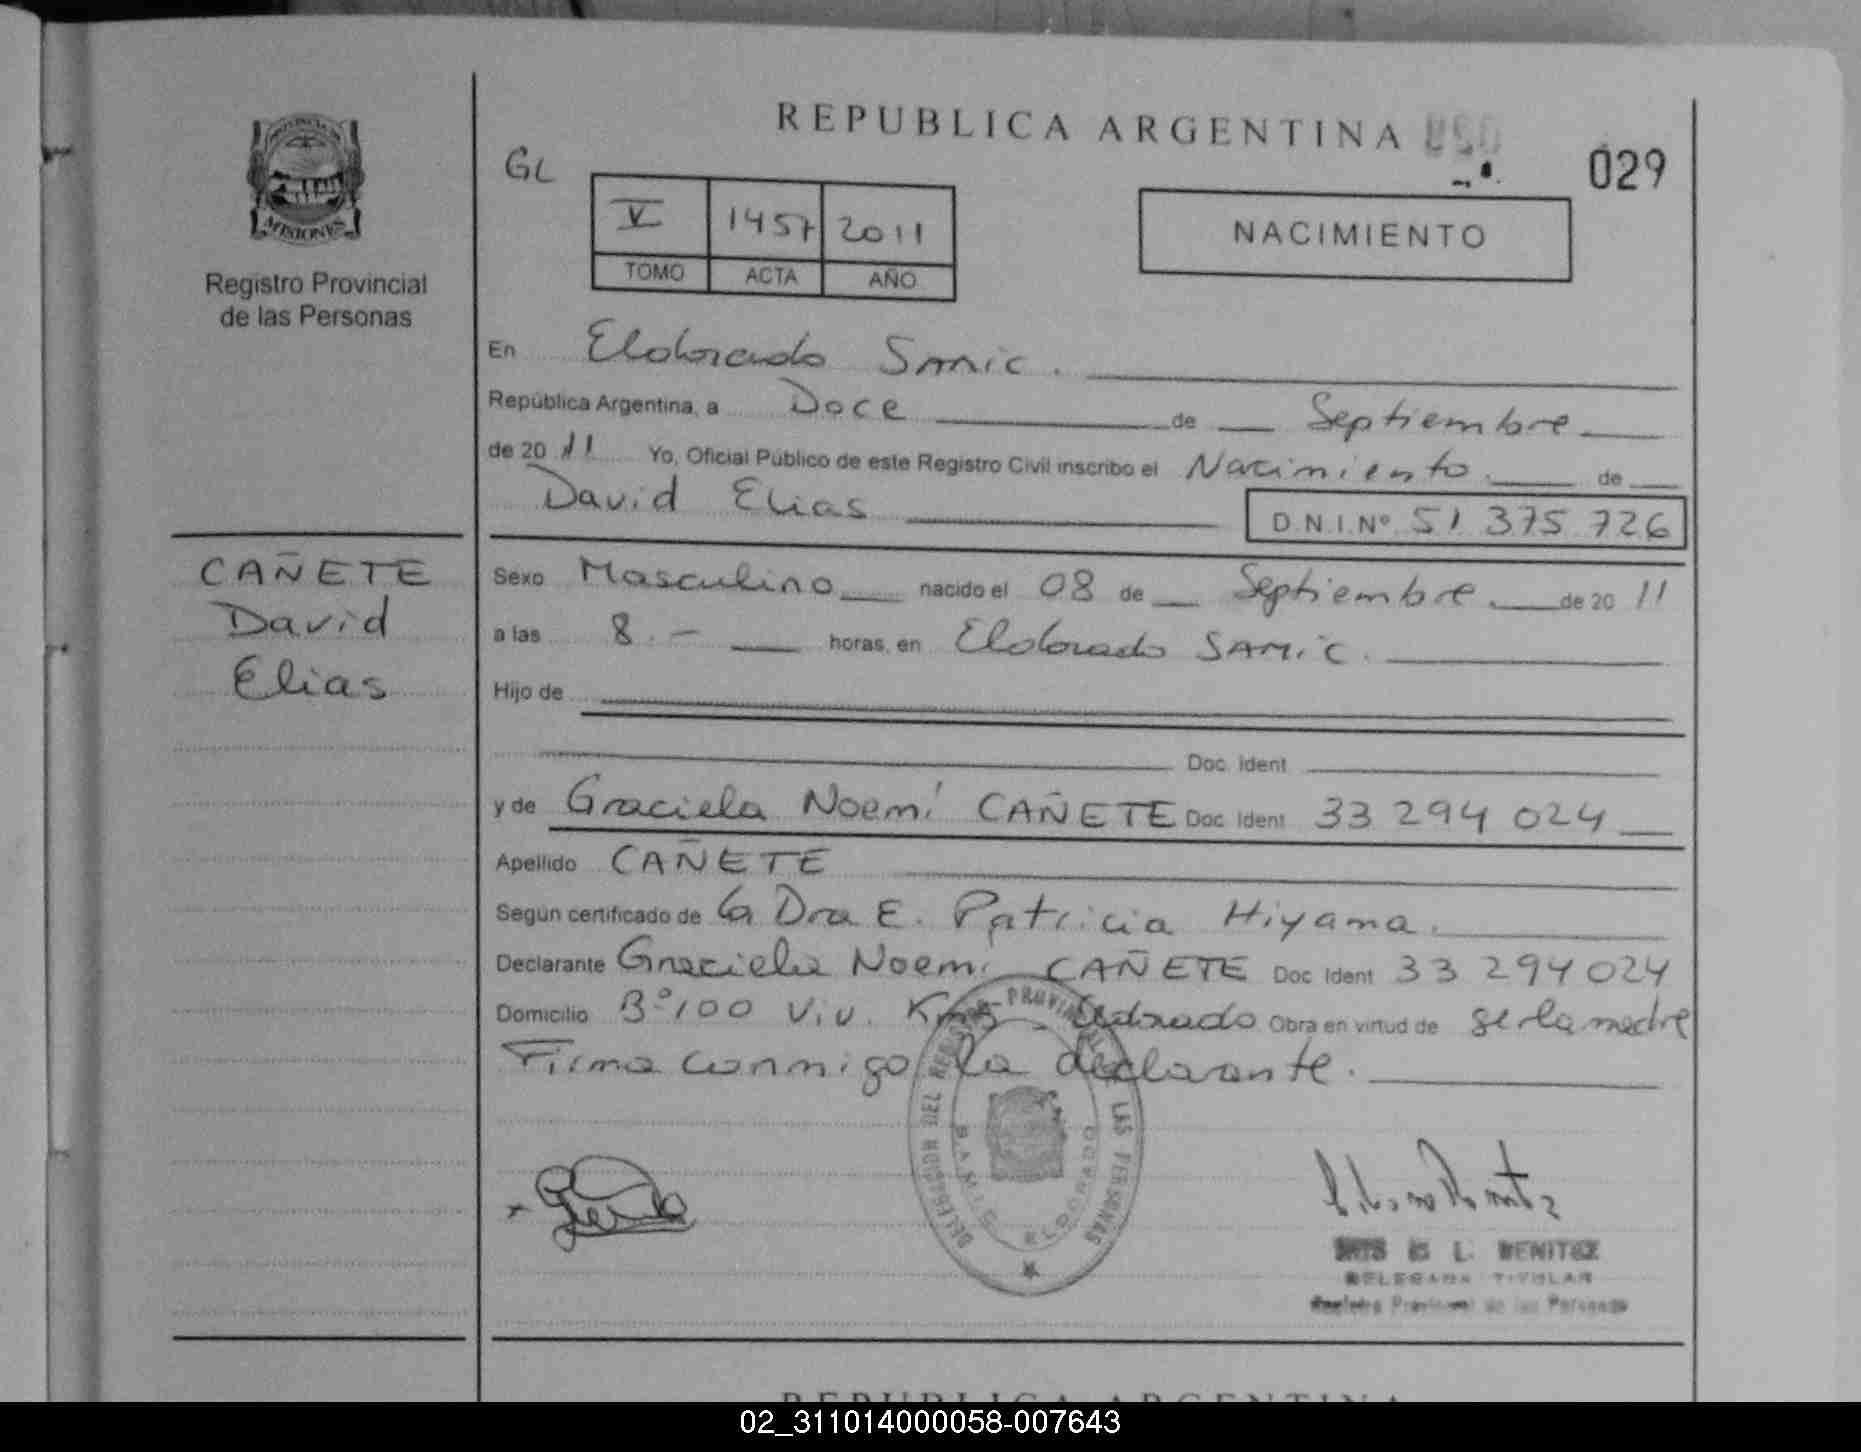 REPUBLICA ARGENTINA
029
PROVINCIA DE
MISIONES
Registro Provincial
de las Personas
GL
V 1457 2011
TOMO ACTA AÑO
NACIMIENTO
En Eldorado SAMIC.
República Argentina, a Doce de Septiembre
de 20 11 Yo, Oficial Público de este Registro Civil inscribo el Nacimiento de
David Elias D.N.I.Nº 51 375 726
CAÑETE
David
Elias
Sexo Masculino nacido el 08 de Septiembre de 20 11
a las 8.- horas, en Eldorado SAMIC.
Hijo de
Doc. Ident
y de Graciela Noemí CAÑETE Doc Ident 33 294 024
Apellido CAÑETE
Según certificado de la Dra E. Patricia Hiyama.
Declarante Graciela Noemí CAÑETE Doc Ident 33 294 024
Domicilio Bº 100 Viv. Eldorado Obra en virtud de ser la madre
Firma conmigo la declarante.
DELEGACION DEL REGISTRO PROVINCIAL LAS PERSONAS
ELDORADO
L. BENITEZ
DELEGADA TITULAR
Registro Provincial de las Personas
REPUBLICA ARGENTINA
02_311014000058-007643